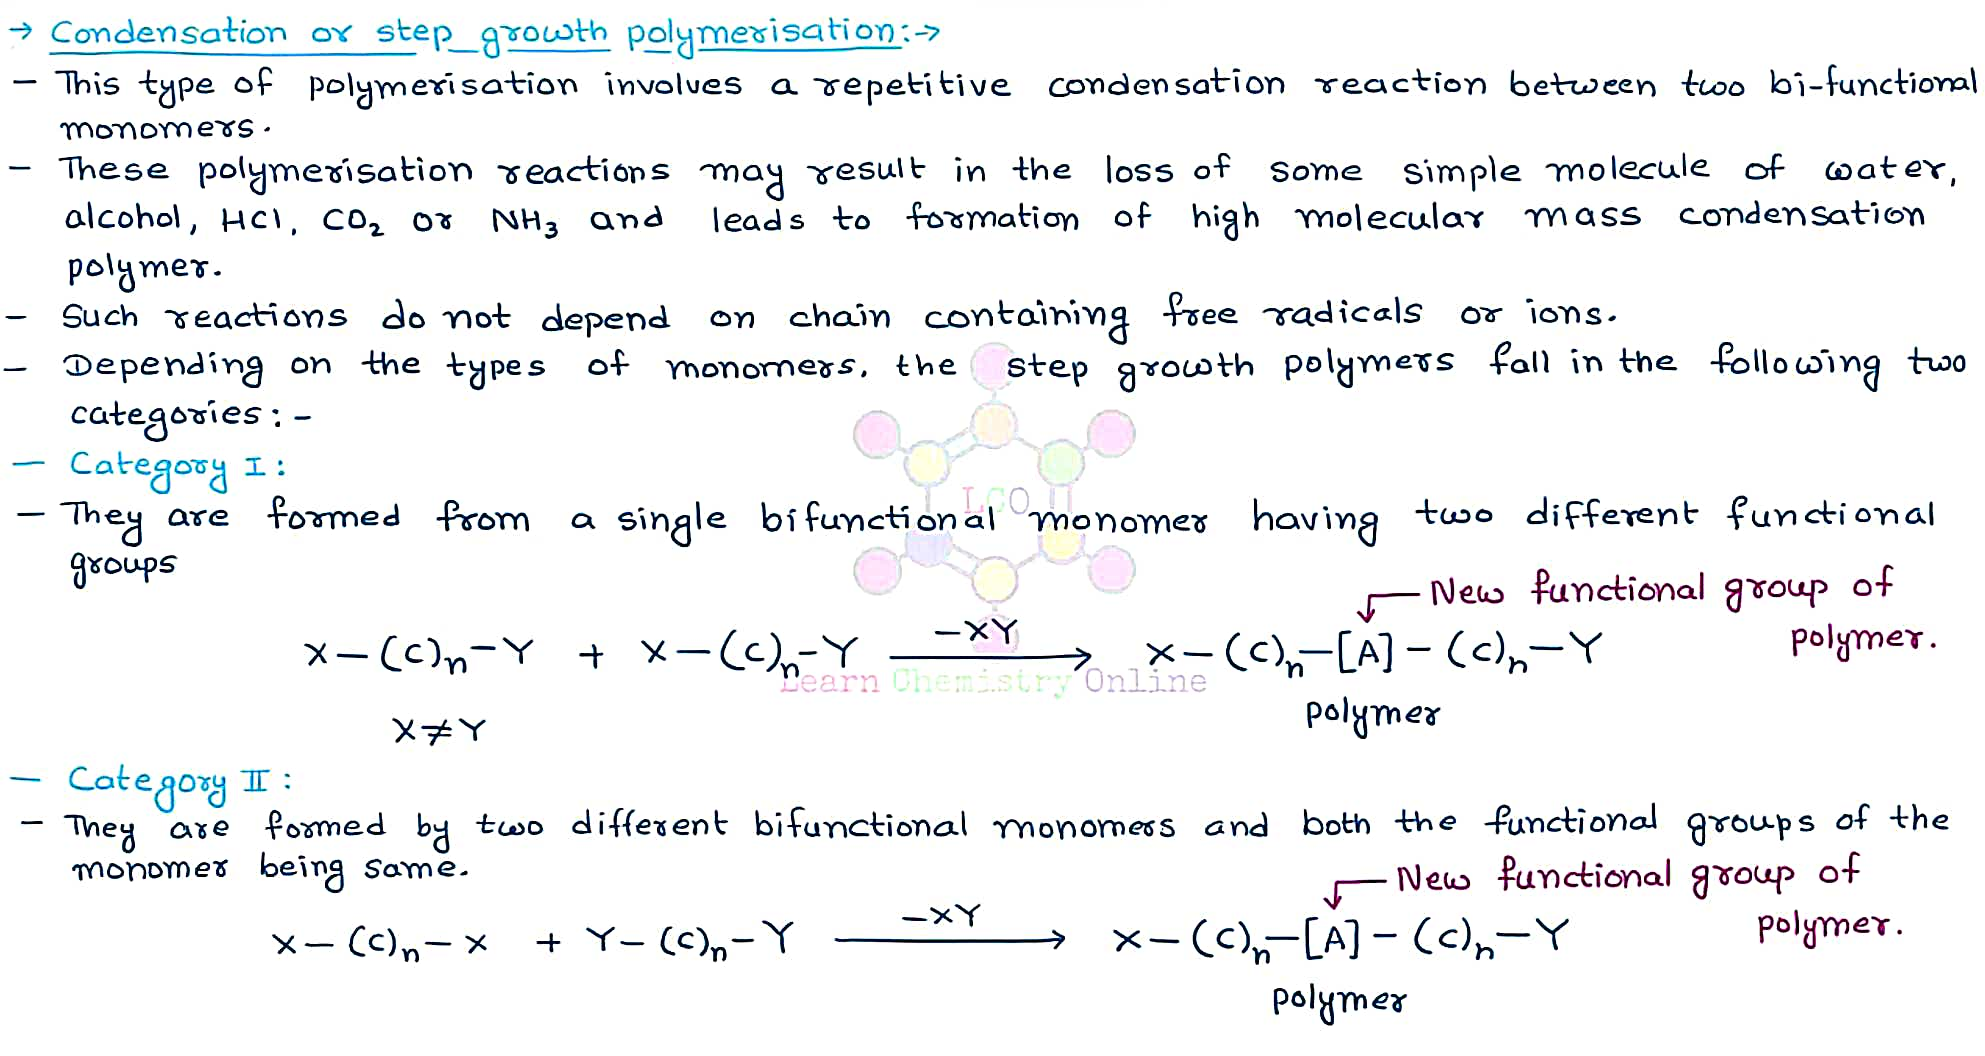 → Condensation or step growth polymerisation:→
– This type of polymerisation involves a repetitive condensation reaction between two bi-functional
monomers.
– These polymerisation reactions may result in the loss of some simple molecule of water,
alcohol, HCl, CO₂ or NH₃ and leads to formation of high molecular mass condensation
polymer.
– Such reactions do not depend on chain containing free radicals or ions.
– Depending on the types of monomers, the step growth polymers fall in the following two
categories: –
– Category I:
– They are formed from a single bifunctional monomer having two different functional
groups
LCO
New functional group of
polymer.
X–(C)ₙ–Y + X–(C)ₙ–Y –XY→ X–(C)ₙ–[A]–(C)ₙ–Y
Learn Chemistry Online
X≠Y
polymer
– Category II:
– They are formed by two different bifunctional monomers and both the functional groups of the
monomer being same.
New functional group of
polymer.
X–(C)ₙ–X + Y–(C)ₙ–Y –XY→ X–(C)ₙ–[A]–(C)ₙ–Y
polymer